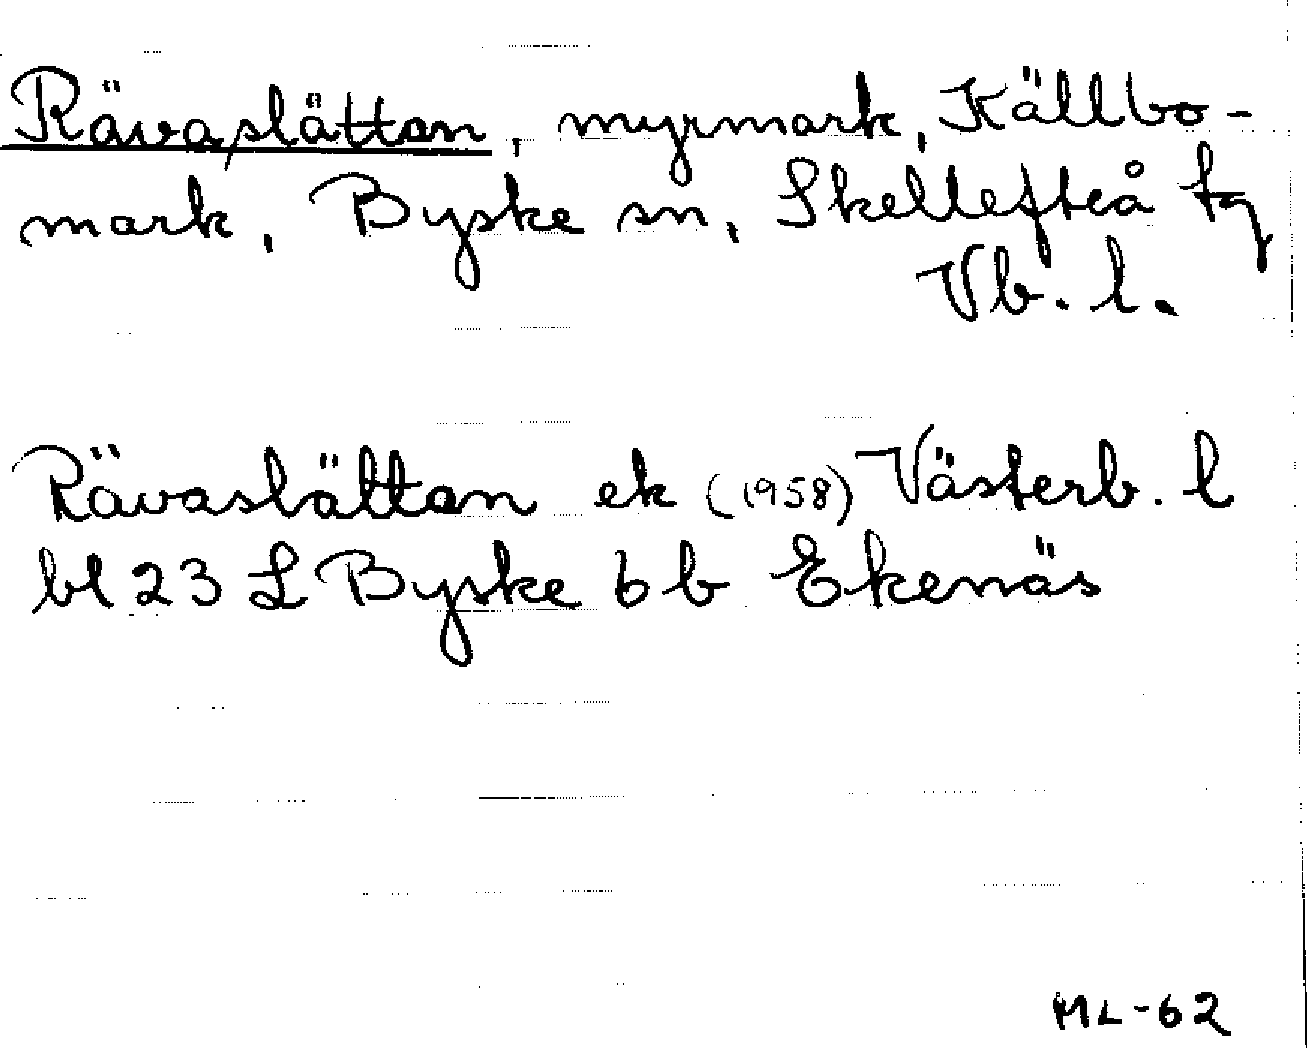 Rävaslättan, myrmark, Källbo-
mark, Byske sn, Skellefteå tg
Vb. l.
Rävaslåttan ek (1958) Västerb. l
bl 23 L Byske 6 b Ekenäs
ML-62